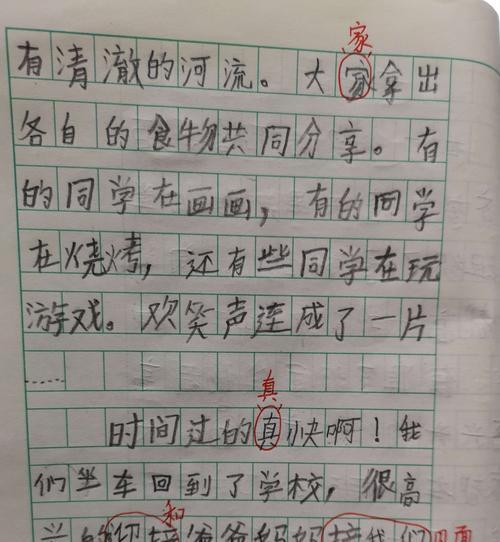 家
有清澈的河流。大家拿出
各自的食物共同分享。有
的同学在画画，有的同学
在烧烤，还有些同学在玩
游戏。欢笑声连成了一片
……
真
时间过的真快啊！我
们坐车回到了学校，很高
和
爸爸妈妈接我们